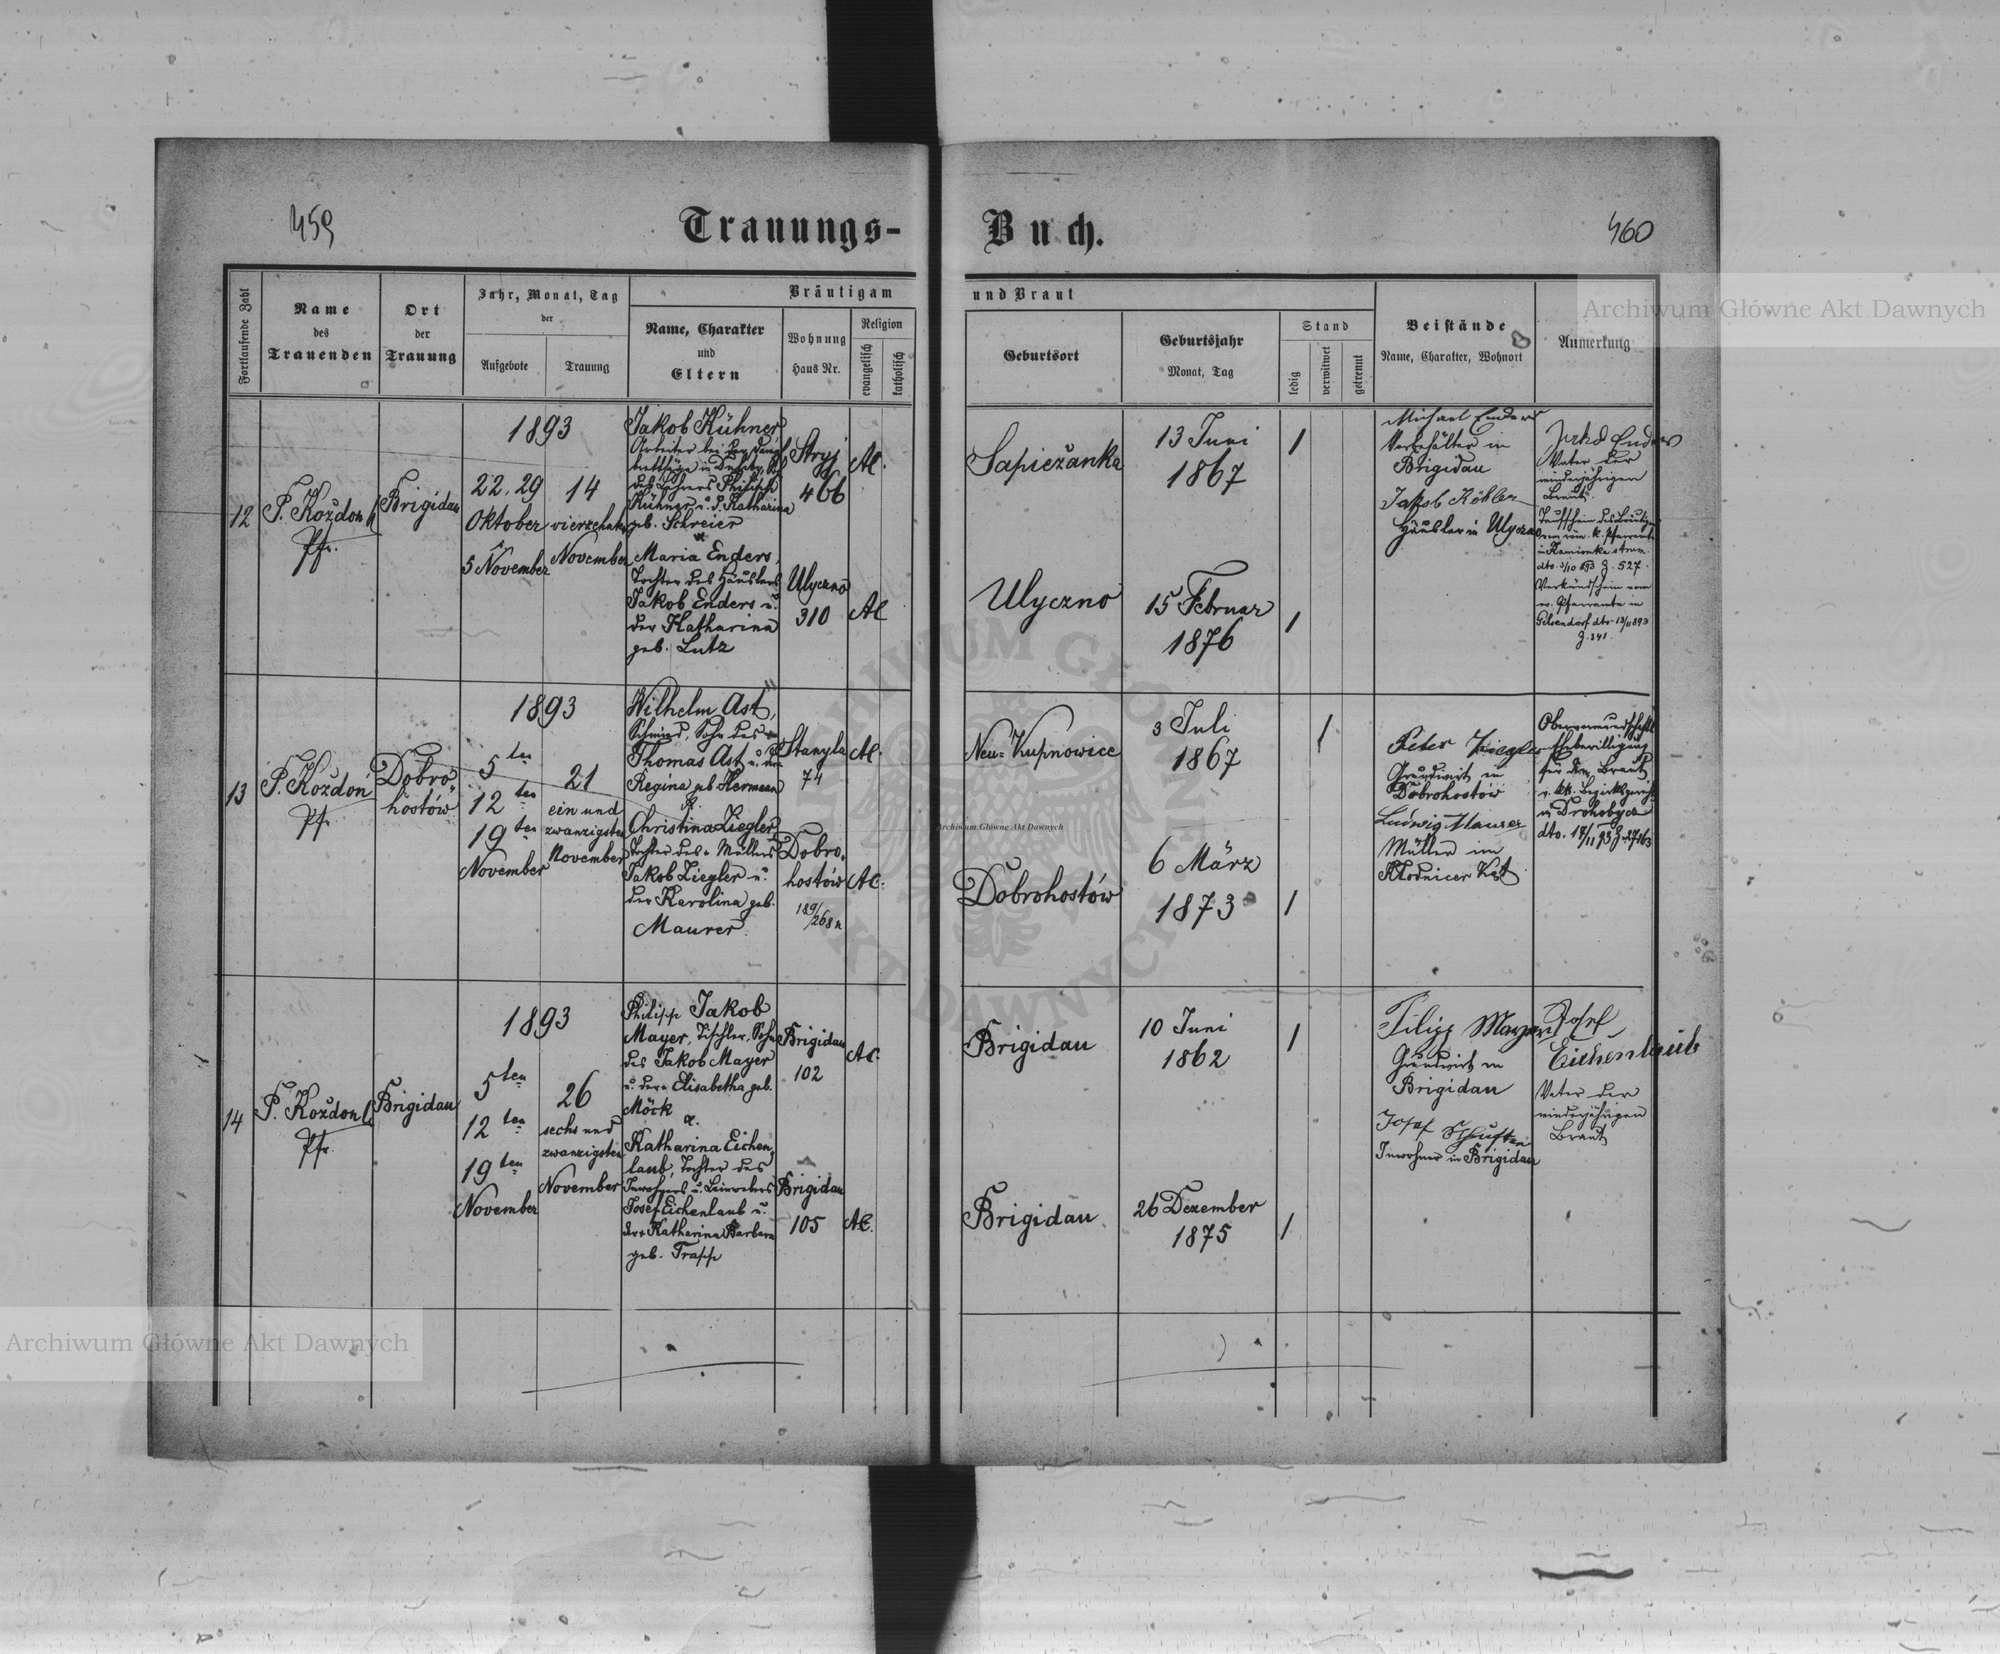 459
Trauungs-
Buch.
460
Fortlaufende Zahl
Name
des
Trauenden
Ort
der
Trauung
Jahr, Monat, Tag
der
Aufgebote
Trauung
Bräutigam
Name, Charakter
und
Eltern
Wohnung
Haus Nr.
Religion
evangelisch
katholisch
und Braut
Geburtsort
Geburtsjahr
Monat, Tag
Stand
ledig
verwitwet
getrennt
Beistände
Name, Charakter, Wohnort
Anmerkung
12
P. Kożdoń
Pfr.
Brigidau
1893
22. 29
Oktober
5 November
14
vierzehnten
November
Jakob Kühner
Arbeiter bei
des Lehrers Philipp
Kühner u. d. Katharina
geb. Schreier
Maria Enders,
Tochter des Häuslers
Jakob Enders u.
der Katharina
geb. Lutz
Stryj
466
AC.
Ulyczno
310
AC
Sapieżanka
13 Juni
1867
Ulyczno
15 Februar
1876
Michael Enders
in
Brigidau
Jakob Köhler
Häusler in Ulyczno
Jakob Enders
Vater der
minderjährigen
Braut.
Taufschein des Bräuti-
röm. k. Pfarramte
in Kamionka strum.
dto. 3/10 893 Z. 527.
Verkündschein vom
ev. Pfarramte in
Gelsendorf dto. 13/11 893
Z. 341.
13
P. Kożdoń
Pf.
Dobro-
hostów
1893
5ten
12ten
19ten
November
21
ein und
zwanzigsten
November
Wilhelm Ast,
Schmied, Sohn des
Thomas Ast u. der
Regina geb. Hermann
&.
Christina Ziegler
Tochter des Müllers
Jakob Ziegler u.
der Karolina geb.
Maurer.
Stanyla
74
AC.
Dobro-
hostów
189/268 n
AC.
Neu-Kupnowice
3 Juli
1867
Dobrohostów
6 März
1873
Peter Ziegler
Grundwirt in
Dobrohostów
Ludwig Maurer
Müller im
Kłodnicer Kat.
Obervormundschaftl.
Ehebewilligung
für die Braut
v. kk. Bezirksgericht
in Drohobycz
dto. 17/11 93 Z. 27163
14
P. Kożdoń
Pfr.
Brigidau
1893
5ten
12ten
19ten
November
26
sechs und
zwanzigsten
November
Philipp Jakob
Mayer, Tischler, Sohn
des Jakob Mayer
u. der Elisabetha geb.
Möck
&.
Katharina Eichen-
laub, Tochter des
Inwohners u. Leinwebers
Josef Eichenlaub u.
der Katharina Barbara
geb. Trapp
Brigidau
102
AC.
Brigidau
105
AC.
Brigidau
10 Juni
1862
Brigidau
26 Dezember
1875
Filipp Mayer
Grundwirt in
Brigidau
Josef Schuster
Inwohner in Brigidau
Josef
Eichenlaub
Vater der
minderjährigen
Braut
Archiwum Główne Akt Dawnych
Archiwum Główne Akt Dawnych
Archiwum Główne Akt Dawnych
ARCHIWUM GŁÓWNE
AKT DAWNYCH